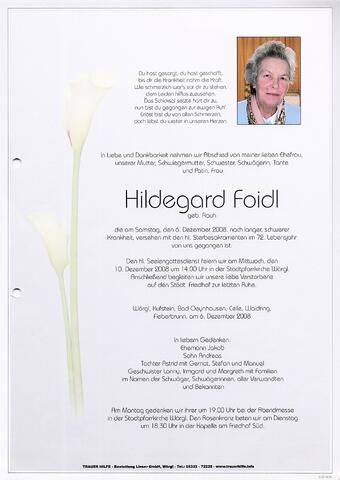 Du hast gesorgt, du hast geschafft,
bis dir die Krankheit nahm die Kraft.
Wie schmerzlich war's vor dir zu stehen,
dem Leiden hilflos zuzusehen.
Das Schicksal setzte hart dir zu,
nun bist du gegangen zur ewigen Ruh'.
Erlöst bist du von allen Schmerzen,
doch lebst du weiter in unseren Herzen.
In Liebe und Dankbarkeit nehmen wir Abschied von meiner lieben Ehefrau,
unserer Mutter, Schwiegermutter, Schwester, Schwägerin, Tante
und Patin, Frau
Hildegard Foidl
geb. Rauh
die am Samstag, den 6. Dezember 2008, nach langer, schwerer
Krankheit, versehen mit den hl. Sterbesakramenten im 72. Lebensjahr
von uns gegangen ist.
Den hl. Seelengottesdienst feiern wir am Mittwoch, den
10. Dezember 2008 um 14.00 Uhr in der Stadtpfarrkirche Wörgl.
Anschließend begleiten wir unsere liebe Verstorbene
auf den Städt. Friedhof zur letzten Ruhe.
Wörgl, Kufstein, Bad Oeynhausen, Celle, Waidring,
Fieberbrunn, am 6. Dezember 2008
In liebem Gedenken:
Ehemann Jakob
Sohn Andreas
Tochter Astrid mit Gernot, Stefan und Manuel
Geschwister Lanny, Irmgard und Margreth mit Familien
im Namen der Schwäger, Schwägerinnen, aller Verwandten
und Bekannten
Am Montag gedenken wir ihrer um 19.00 Uhr bei der Abendmesse
in der Stadtpfarrkirche Wörgl. Den Rosenkranz beten wir am Dienstag
um 18.30 Uhr in der Kapelle am Friedhof Süd.
TRAUER HILFE - Bestattung Linser GmbH, Wörgl - Tel.: 05332 - 72225 - www.trauerhilfe.info